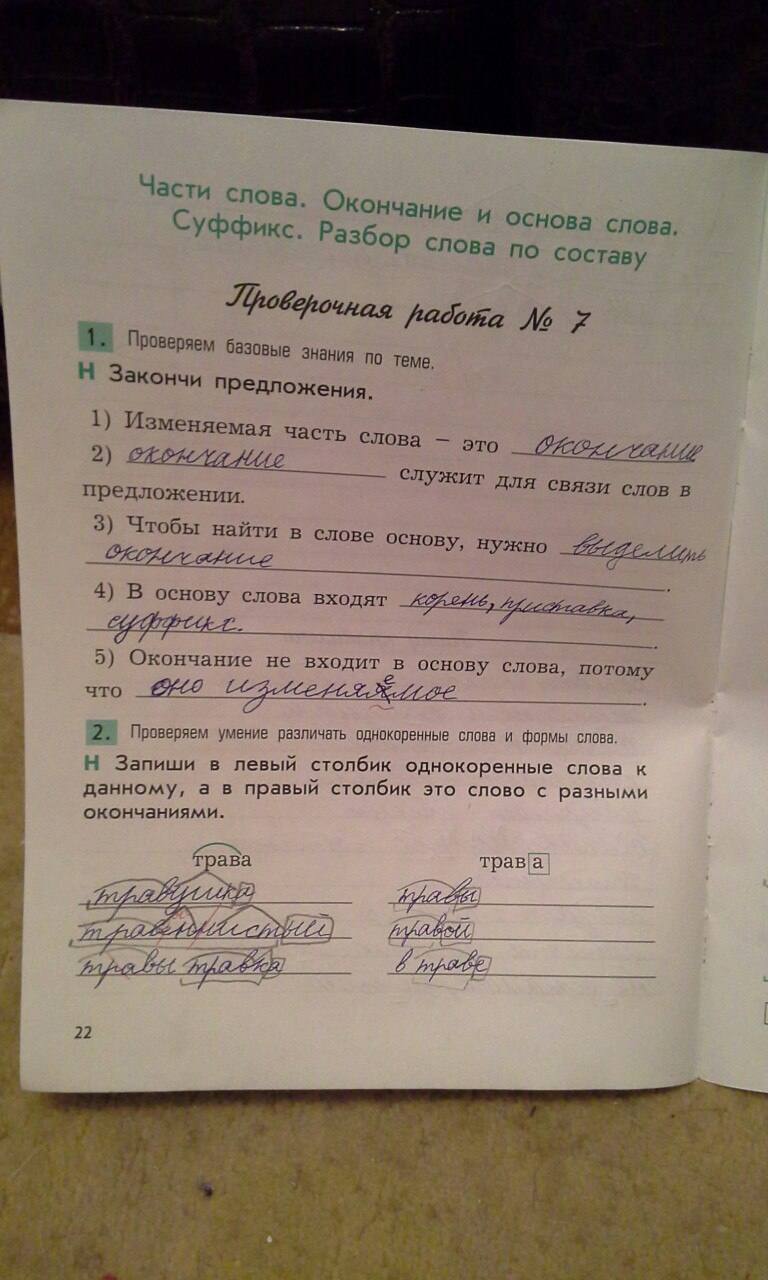 Части слова. Окончание и основа слова.
Суффикс. Разбор слова по составу
Проверочная работа № 7
1. Проверяем базовые знания по теме.
Н Закончи предложения.
1) Изменяемая часть слова – это окончание
2) окончание служит для связи слов в
предложении.
3) Чтобы найти в слове основу, нужно выделить
окончание.
4) В основу слова входят корень, приставка,
суффикс.
5) Окончание не входит в основу слова, потому
что оно изменяемое.
2. Проверяем умение различать однокоренные слова и формы слова.
Н Запиши в левый столбик однокоренные слова к
данному, а в правый столбик это слово с разными
окончаниями.
трава трава
травушка травы
травянистый травой
травы травка в траве
22